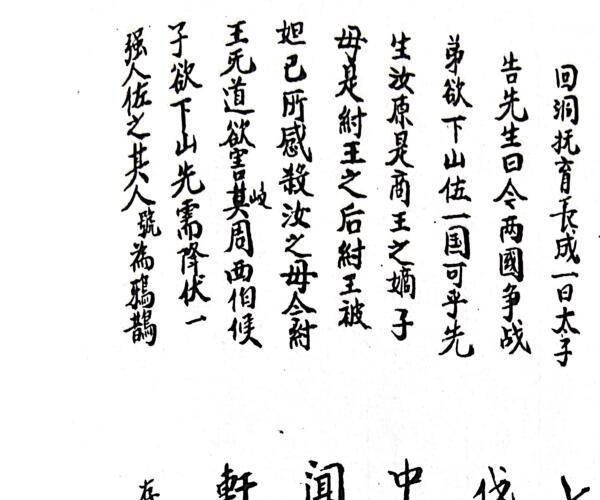 回洞抚育長成一日太子
告先生曰今两國争战
弟欲下山佐一国可乎先
生汝原是商王之嫡子
母是紂王之后紂王被
妲己所感殺汝之母今紂
王无道欲害其岐周西伯候
子欲下山先需降伏一
强人佐之其人號為鴉鹊
伐
中
闻
軒
存